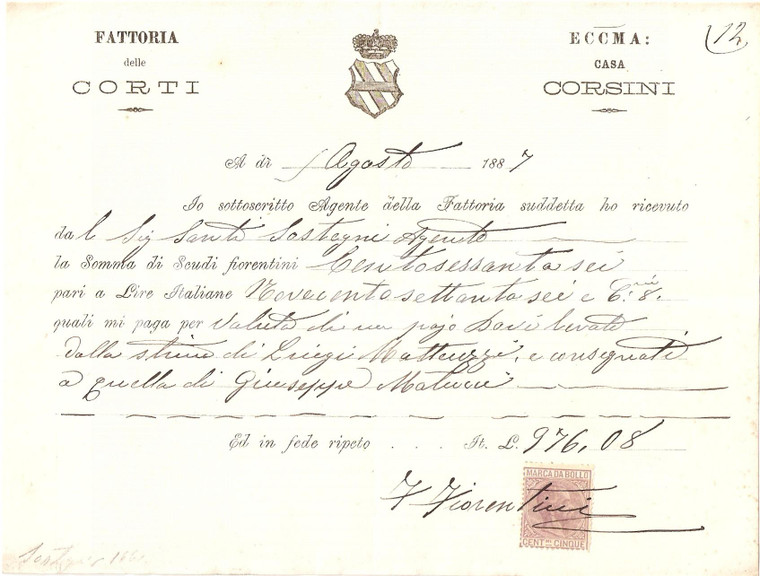 FATTORIA
delle
CORTI
ECCMA:
CASA
CORSINI
12
A dì Agosto 1887
Io sottoscritto Agente della Fattoria suddetta ho ricevuto
dal Sig Santi Sostegni Agente
la Somma di Scudi fiorentini Centosessantasei
pari a Lire Italiane Novecentosettantasei e C. 8.
quali mi paga per valuta di un pajo levato
dalla stima di Luigi Matteuzzi, e consegnati
a quella di Giuseppe
Ed in fede ripeto . . . . It. L. 976,08
Fiorentini
MARCA DA BOLLO
CENT. CINQUE